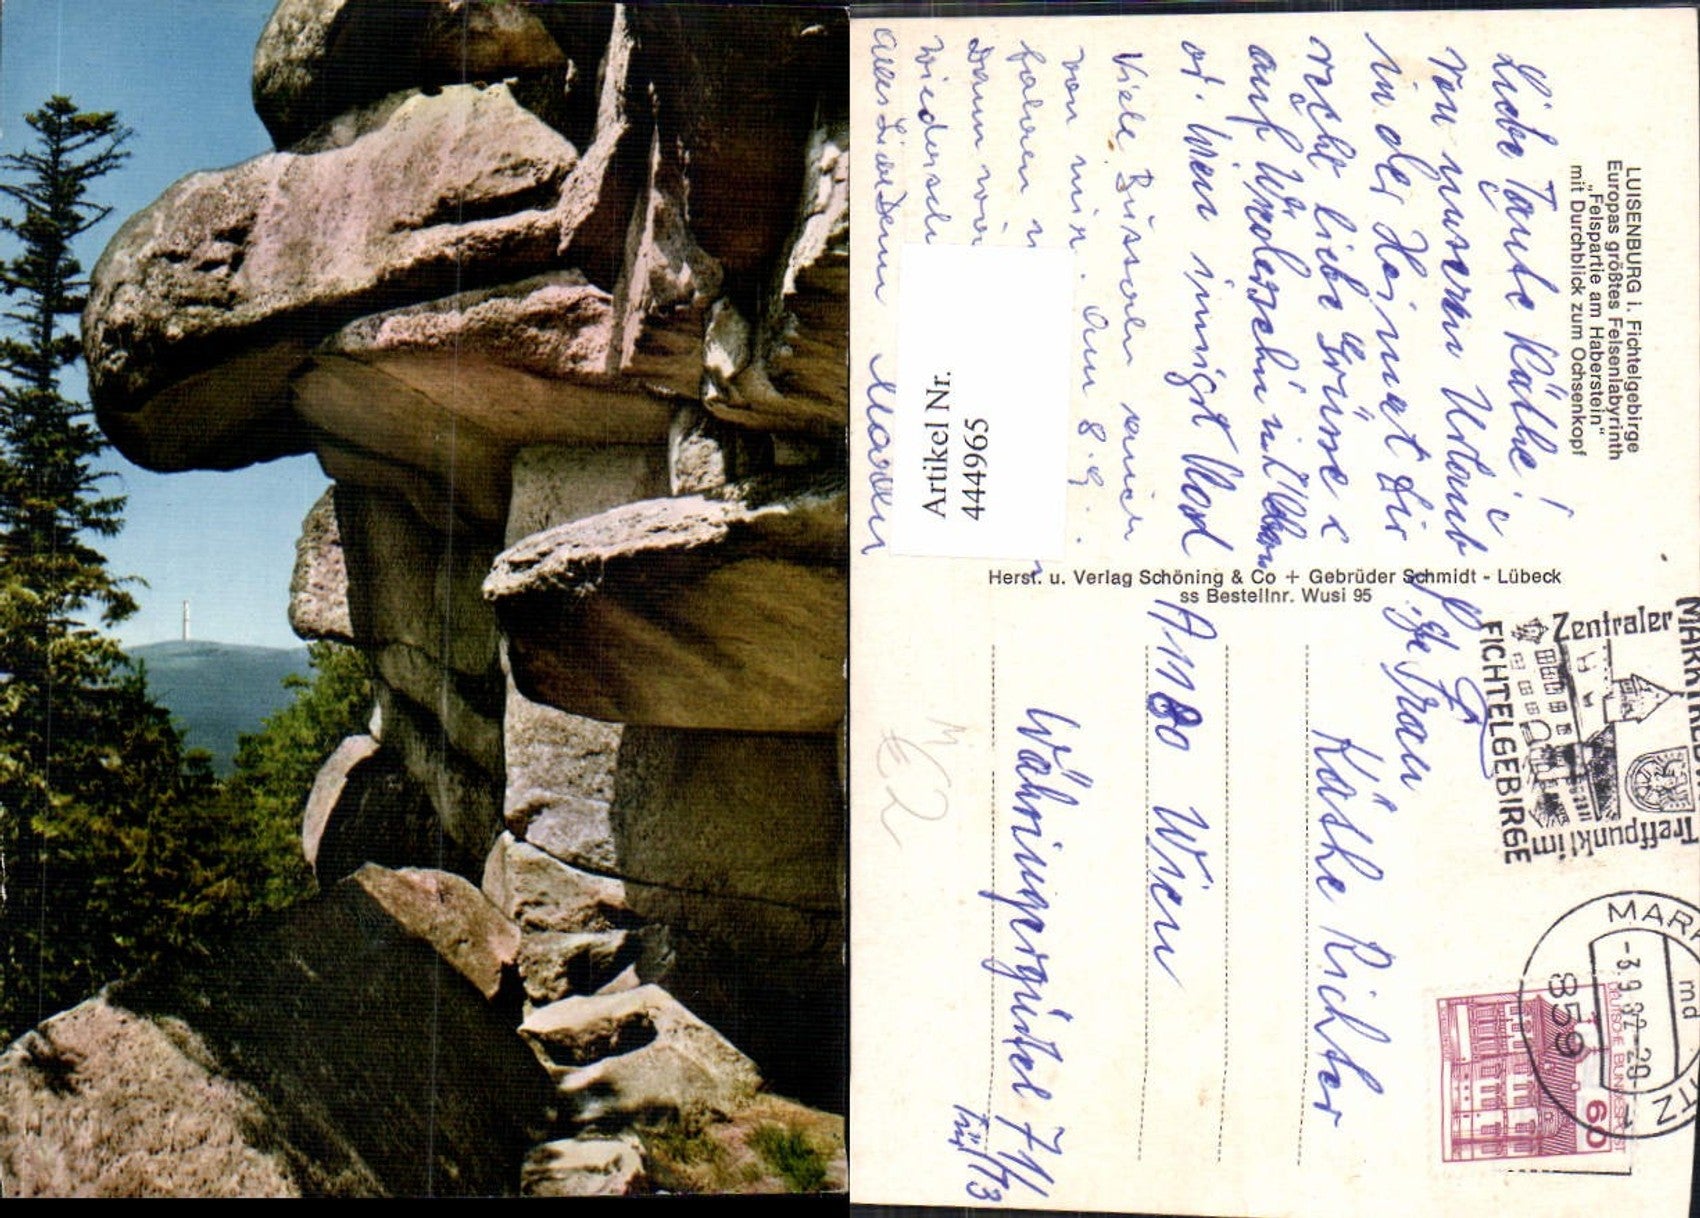 LUISENBURG i. Fichtelgebirge
Europas größtes Felsenlabyrinth
„Felspartie am Haberstein“
mit Durchblick zum Ochsenkopf
Liebe Tante Käthe!
von unserem Urlaub
in der Heimat Dir
recht liebe Grüsse
auf Wiedersehn in
Wien innigst
Viele Bussaln
von mir. Am 8.9.
fahren
Dann
Wiedersehn
alles Liebe Denn
Artikel Nr.
444965
Herst. u. Verlag Schöning & Co + Gebrüder Schmidt - Lübeck
ss Bestellnr. Wusi 95
Zentraler
Treffpunkt im
FICHTELGEBIRGE
MARK
TZ
md
-3.9.82-20
859
DEUTSCHE BUNDESPOST
60
Frau
Käthe Richter
A 1180 Wien
Währingergürtel 7/1
Tür/13